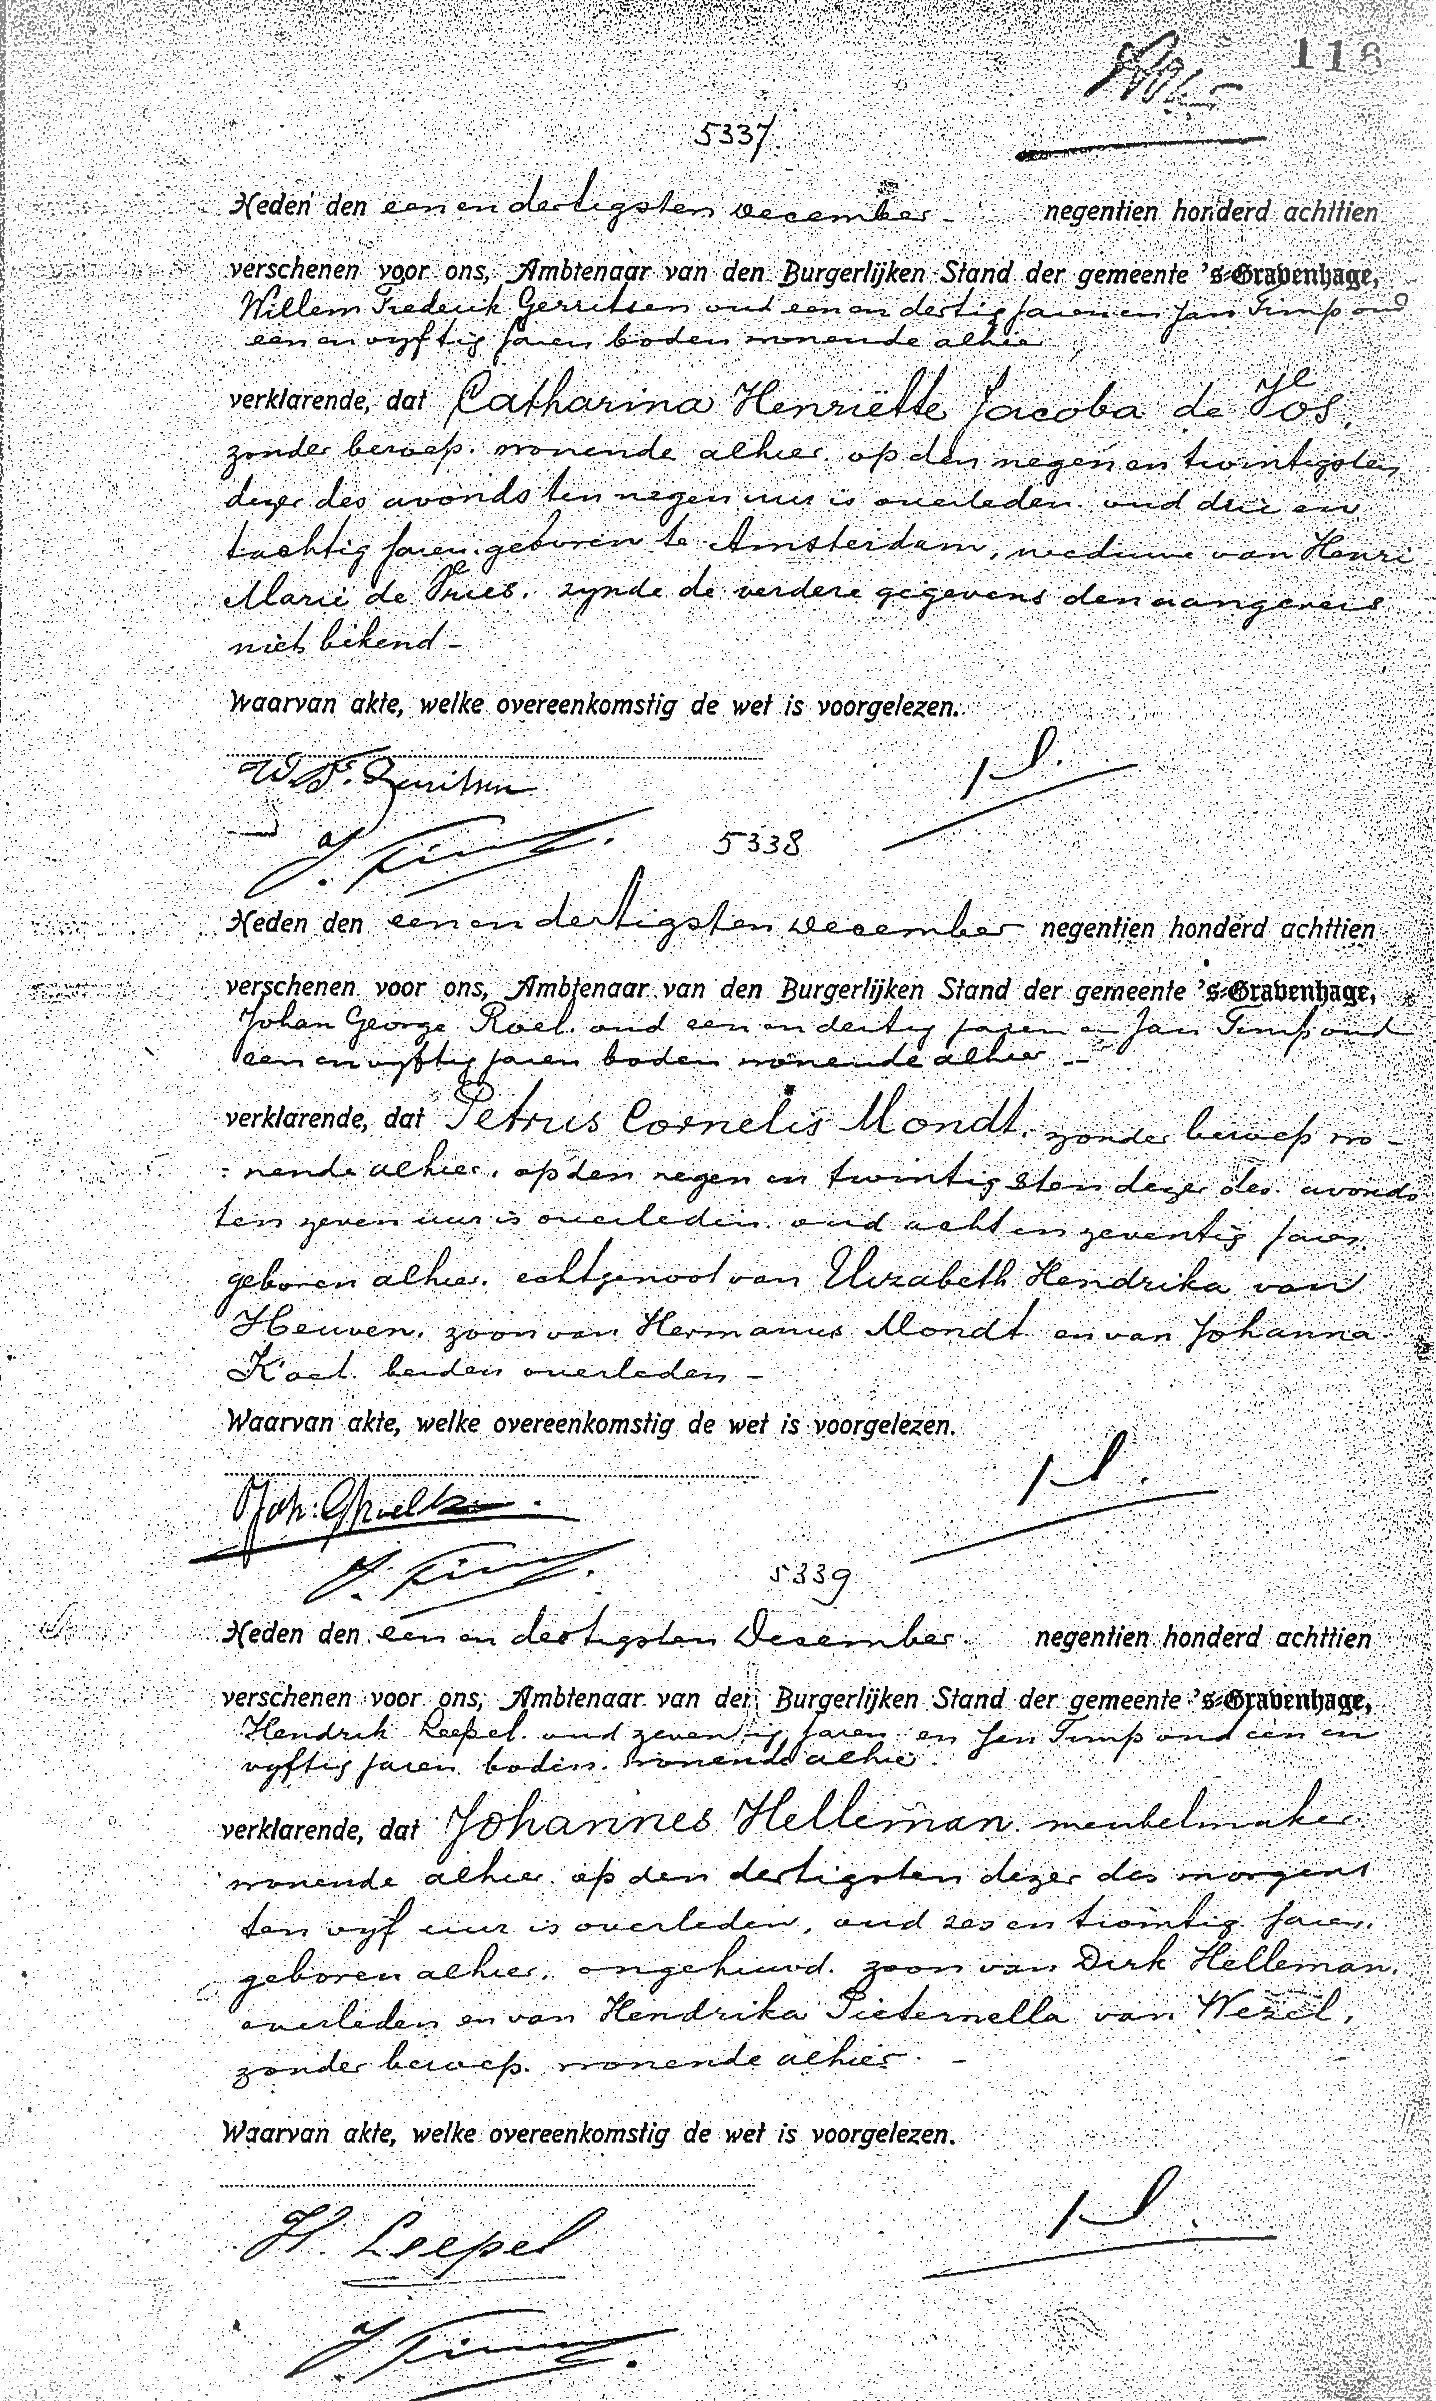 116
5337
Heden den een en dertigsten December - negentien honderd achttien
verschenen voor ons, Ambtenaar van den Burgerlijken Stand der gemeente 's-Gravenhage,
Willem Frederik Gerritsen oud een en dertig jaren en Jan Timp oud
een en vyftig jaren boden wonende alhier
verklarende, dat Catharina Henriëtte Jacoba de Vos,
zonder beroep. wonende alhier. op den negen en twintigsten
dezer des avonds ten negen uur is overleden. oud drie en
tachtig jaren. geboren te Amsterdam, weduwe van Henri
Marie de Vries. zynde de verdere gegevens den aangevers
niet bekend -
Waarvan akte, welke overeenkomstig de wet is voorgelezen.
W. F. Gerritsen
J. Timp.
5338
Heden den een en dertigsten December negentien honderd achttien
verschenen voor ons, Ambtenaar van den Burgerlijken Stand der gemeente 's-Gravenhage,
Johan George Roel. oud een en dertig jaren en Jan Timp oud
een en vyftig jaren boden wonende alhier -
verklarende, dat Petrus Cornelis Mondt. zonder beroep wo-
: nende alhier. op den negen en twintigsten dezer des avonds
ten zeven uur is overleden. oud acht en zeventig jaren.
geboren alhier. echtgenoot van Elizabeth Hendrika van
Heuven. zoon van Hermanus Mondt en van Johanna
Koel. beiden overleden -
Waarvan akte, welke overeenkomstig de wet is voorgelezen.
J. Timp.
5339
Heden den een en dertigsten December. negentien honderd achttien
verschenen voor ons, Ambtenaar van den Burgerlijken Stand der gemeente 's-Gravenhage,
Hendrik Leepel. oud zeventig jaren en Jan Timp oud een en
vyftig jaren boden. wonende alhier.
verklarende, dat Johannes Helleman. meubelmaker
wonende alhier. op den dertigsten dezer des morgens
ten vyf uur is overleden, oud zes en twintig jaren.
geboren alhier. ongehuwd. zoon van Dirk Helleman.
overleden en van Hendrika Pieternella van Wezel,
zonder beroep. wonende alhier. -
Waarvan akte, welke overeenkomstig de wet is voorgelezen.
H. Leepel
J. Timp.